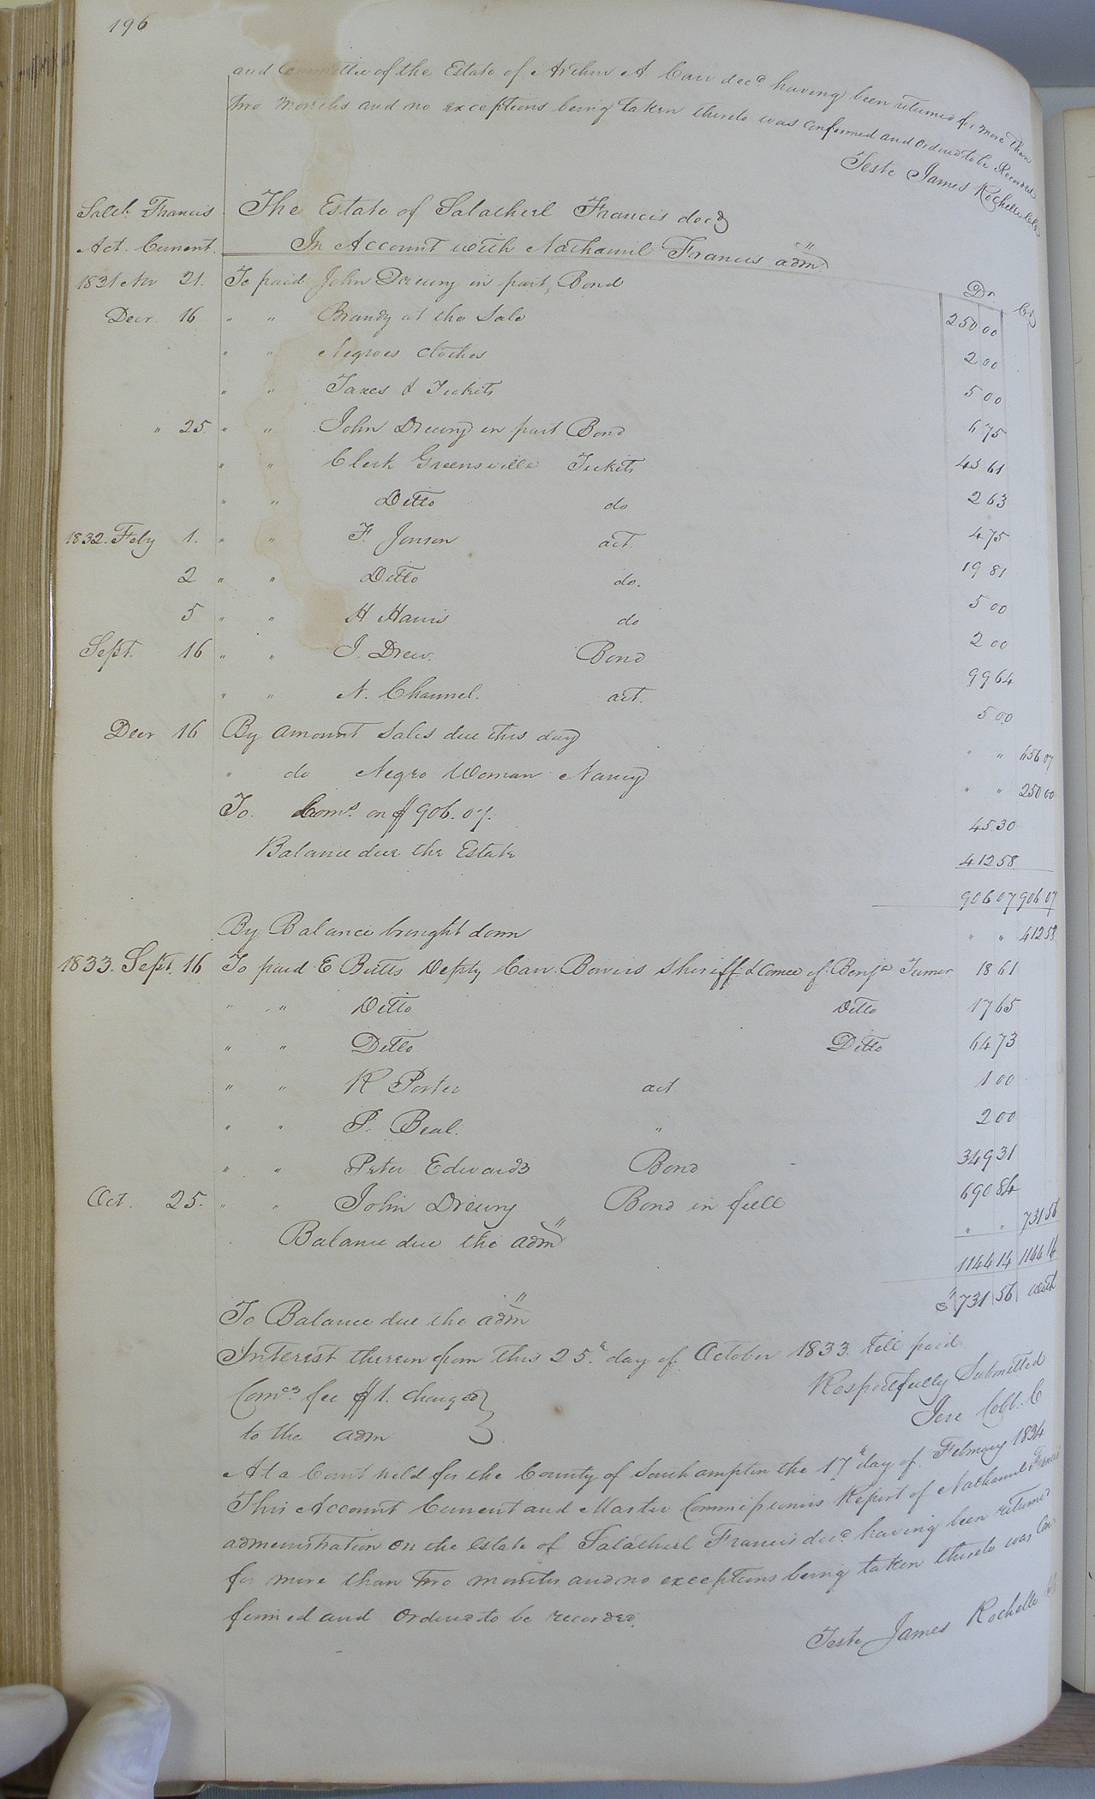 196
and Committee of the Estate of Arthur A. Carr decd having been returned for more than
two months and no exceptions being taken thereto was confirmed and ordered to be Recorded
Teste James Rochelle Clk
Salth. Francis
Act. Current.
The Estate of Salatheil Francis decd
In Account with Nathaniel Francis adm
Dr Cr
1831 Nov 21. To paid John Drewry in part, Bond 250 00
Decr 16 " " Brandy at the Sale 2 00
" " Negroes Clothes 5 00
" " Taxes & Tickets 6 75
" 25 " " John Drewry in part Bond 45 61
" " Clerk Greensville Tickets 2 63
" " Ditto do 4 75
1832. Feby 1. " " F. Jonson act. 19 81
2 " " Ditto do. 5 00
5 " " H Harris do 2 00
Sept. 16 " " J. Drew. Bond 99 64
" " N. Channel. act. 5 00
Decr 16 By amount Sales due this day " " 656 07
" do Negro Woman Nancy " " 250 00
To. Coms. on $906.07. 45 30
Balance due the Estate 412 58
906 07 906 07
By Balance brought down " " 412 58
1833. Sept. 16 To paid E Butts Depty Carr Bowers Sheriff & Comee of Benja Turner 18 61
" " Ditto Ditto 17 65
" " Ditto Ditto 64 73
" " R Porter act 1 00
" " P. Beal. " 2 00
" " Peter Edwards Bond 349 31
Oct. 25. " " John Drewry Bond in full 690 84
Balance due the adm " " 731 56
1144 14 1144 14
To Balance due the adm $731 56 with
Interest thereon from this 25th day of October 1833 till paid
Coms. fee $1. charged
to the adm
Respectfully Submitted
Jere Cobb. C
At a Court held for the County of Southampton the 17th day of February 1834
This Account Current and Master Commissioners Report of Nathaniel Francis
administration on the estate of Salatheil Francis decd having been returned
for more than two months and no exceptions being taken thereto was Con
firmed and Ordered to be recorded.
Teste James Rochelle Clk